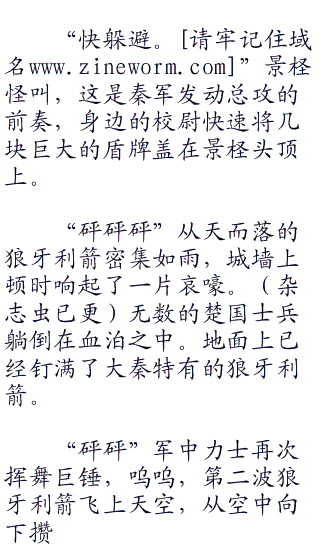 “快躲避。[请牢记住域
名www.zineworm.com]”景柽
怪叫，这是秦军发动总攻的
前奏，身边的校尉快速将几
块巨大的盾牌盖在景柽头顶
上。
“砰砰砰”从天而落的
狼牙利箭密集如雨，城墙上
顿时响起了一片哀嚎。（杂
志虫已更）无数的楚国士兵
躺倒在血泊之中。地面上已
经钉满了大秦特有的狼牙利
箭。
“砰砰”军中力士再次
挥舞巨锤，呜呜，第二波狼
牙利箭飞上天空，从空中向
下攒